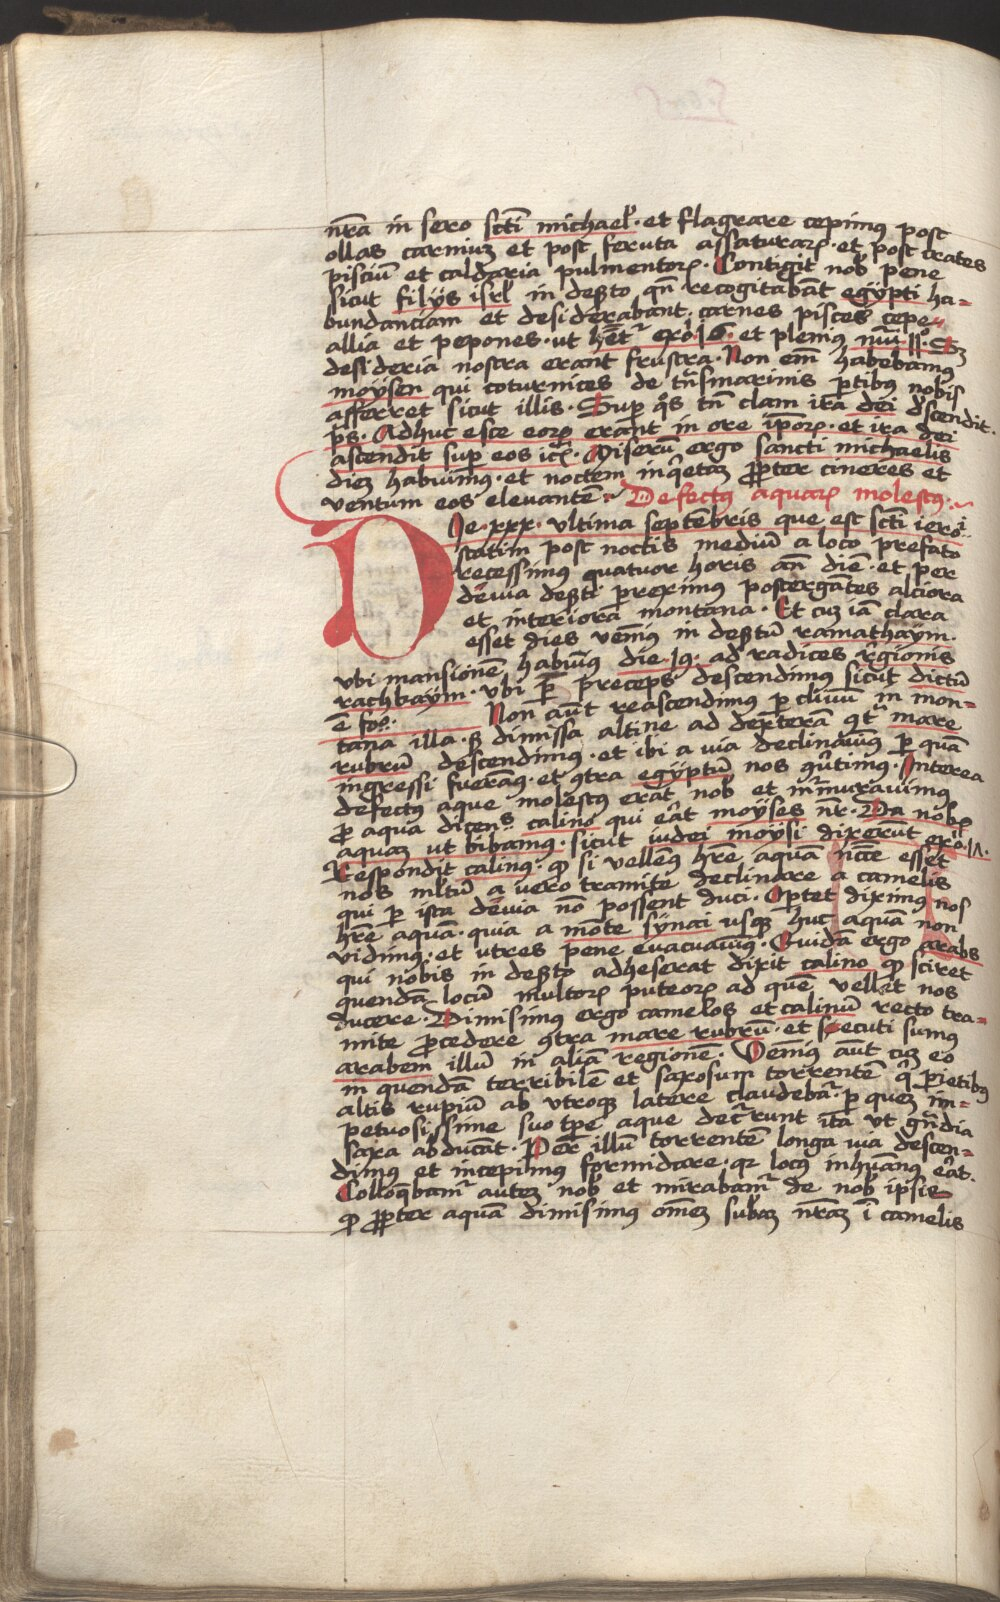 nr̄a in sero sct̄i michael̕· et flagrare cepimus post
ollas carnium et post feruta assaturarꝝ· et post crates
pisciū et caldaria pulmentorꝝ· Contigit nob̕ pene
sicut filijs isrl̕ in dess̕to qn̄ recogitabāt egẏpti ha=
bundanciam et desiderabant· carnes pisces cepe
allia et pepones· ut hēt᷑ exo· 16· et plenius nūi 11°· Sꝫ
desideria nostra erant frustra· Non em̄ habebamus
moẏsen qui coturnices de tn̄smarinis ꝑtibus nobis
afferret sicut illis· Suꝑ qͦs tn̄ clam ira dei dēscendit·
p̄s· Adhuc esce eorꝝ erant in ore ip̄orꝝ· et ira dei
ascendit suꝑ eos ic̄· Miserū ergo sancti michaelis
diem habuimus· et noctem inqͥetaꝫ ꝓpter cineres et
ventum eos elevantē· Defectus aquarꝝ molestus·
Die· xxx· vltima septembris que est sct̄i iero̅i
statim post noctis mediū a loco prefato
recessimus quatuor horis an̄ diē· et per
dēuia desꝰti preximus postergātes alciora
et interiora montana· Et cuꝫ iā clara
esset dies venimus in desꝰtū ramathaẏm·
vbi mansionē habuimus die· 19· ad radices rͤgionis
rachbaẏm· vbi ꝑ preceps descendimus sicut dictū
ē fo°· Non aūt reascendimus ꝑ cliuū in mon=
tana illa· sꝫ dimissa altine ad dexterā ꝯtͣ mare
rubrū descendimus· et ibi a uia declinauimus ꝑ quā
ingressi fueramus· et ꝯtra egẏptū nos ꝟtimus· Interea
defectus aque molestus erat nob̕ et murmurauimus
ꝓ aqua dicens calino qui erat moẏses nr̄· Da nob̕
aquaꝫ ut bibamus· sicut iudei moẏsi dixerūt exo· 17·
Respondit calinus· ꝙ si vellemus hr̄e aquā nc̄ce esset
nos ml̕tū a vero tramite declinare a camelis
qui ꝑ ista dēuia nō possent duci· Oꝑtet diximus nos
hr̄e aquā· quia a mōte sẏnai usqꝫ huc aquā non
vidimus· et utres pene evacuauimus· Quidā ergo arabs
qui nobis in desꝰto adheserat dixit calino ꝙ sciret
quendā locū multorꝝ puteorꝝ ad quē vellet nos
ducere· Dimisimus ergo camelos et calinū recto tra=
mite ꝓcedere ꝯtra mare rubrū· et secuti sumus
arabem illū in aliā regionē· Venimus aūt cuꝫ eo
in quendā terribilē et saxosum torrentē qͥ ꝑietibꝫ
altis rupiū ab vtroqꝫ latere claudebat᷑· ꝑ quem im=
petuosissime suo tꝑe aque decurrunt ita ut gn̄dia
saxa abducāt· Per illū torrentē longa uia descen=
dimus et incepimus formidare· qꝛ locus inhumanus erat·
Colloq̄bam᷑ auteꝫ nob̕ et mirabam᷑ de nob̕ ipsis
ꝙ ꝓpter aquā dimisimus omeꝫ sub̄aꝫ nr̄aꝫ ī camelis